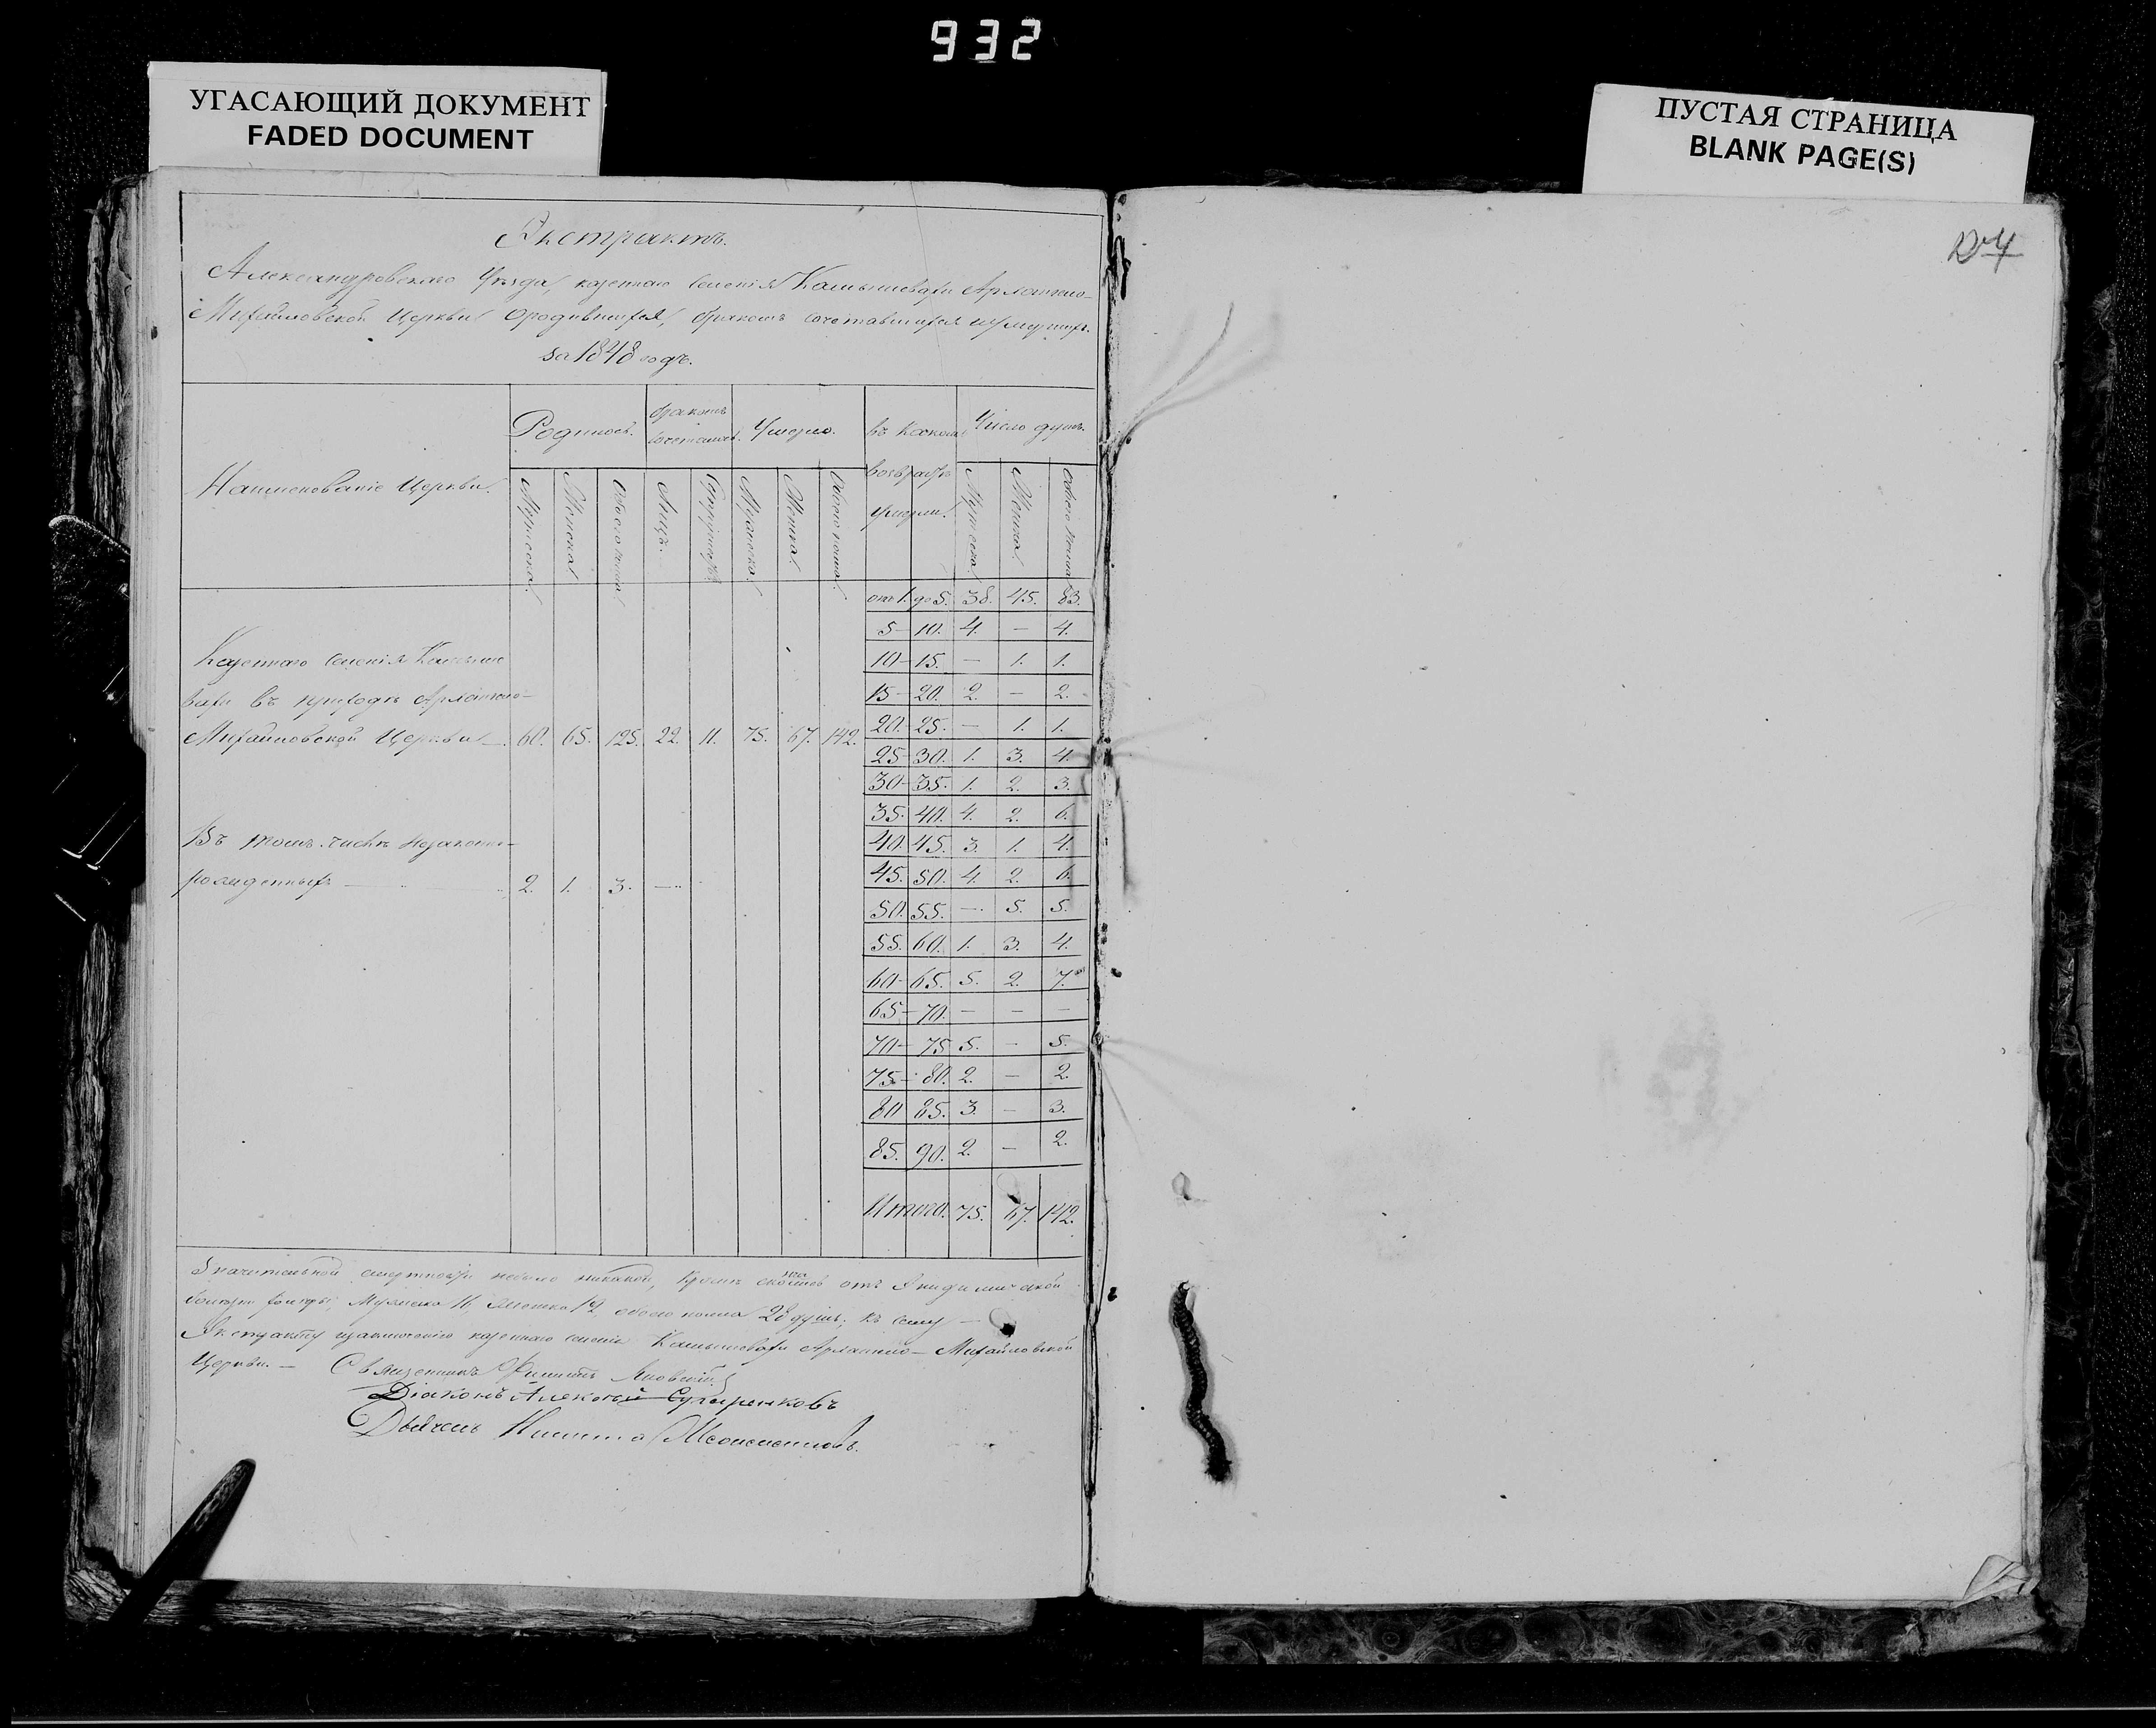 932
УГАСАЮЩИЙ ДОКУМЕНТ
FADED DOCUMENT
ПУСТАЯ СТРАНИЦА
BLANK PAGE(S)
Экстрактъ.
Александровскаго Уѣзда, казеннаго селенія Камышевахи Архангело-
Михайловской Церкви о родившихся, бракомъ сочетавшихся и умершихъ
за 1848 годъ.
Наименованіе Церкви.
Родилось.
бракомъ сочеталось.
Умерло.
въ какомъ возрастѣ умерли.
Число душъ.
Мужеска
Женска
Обоего пола
Лицъ.
Супружествъ
Мужеска
Женска
Обоего пола
Мужеска
Женска
Обоего пола
отъ 1. до 5. 38. 45. 83.
5-10. 4. — 4.
10-15. — 1. 1.
15-20. 2. — 2.
20-25. — 1. 1.
25-30. 1. 3. 4.
30-35. 1. 2. 3.
35. 40. 4. 2. 6.
40. 45. 3. 1. 4.
45. 50. 4. 2. 6.
50. 55. — 5. 5.
55. 60. 1. 3. 4.
60-65. 5. 2. 7.
65-70. — — —
70-75 5. — 5.
75-80. 2. — 2.
80 85. 3. — 3.
85. 90. 2. — 2.
Итого. 75. 67. 142.
Казеннаго селенія Камыше
вахи въ приходѣ Архангело-
Михайловской Церкви 60. 65. 125. 22. 11. 75. 67. 142.
Въ томъ числѣ незаконно-
рожденныхъ 2. 1. 3. —
Значительной смертности небыло никакой, кромѣ отъ Эпидимической
болезни холеры, Мужеска 16, женска 12 обоего пола 28 душъ; къ сему —
Экстракту казеннаго селенія Камышевахи Архангело-Михайловской
Церкви. — Священникъ Филиппъ
Діаконъ Алексей
Дьячекъ Никита